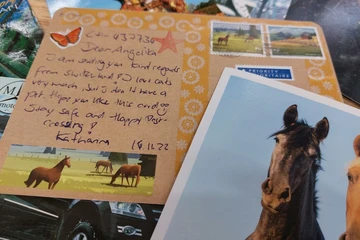 Dear Angelika
I am sending you kind regards
from Switzerland! I love cats
very much, but I don't have a
pet. Hope you like this card
Stay safe and Happy Post-
crossing!
Kathanna
18.11.22
PRIORITY
PRIORITAIRE